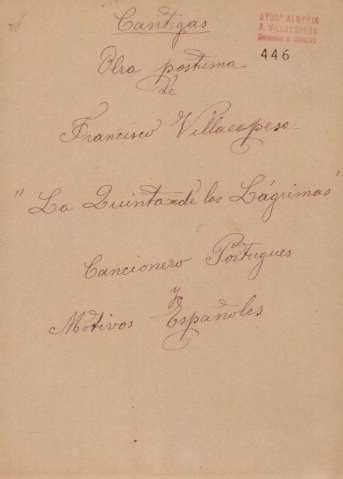 Cantigas
AYUNT. ALMERIA
F. VILLAESPESA
446
Obra postuma
de
Francisco Villaespesa
"La Quinta de las Lágrimas"
Cancionero Portugues
y
Motivos Españoles